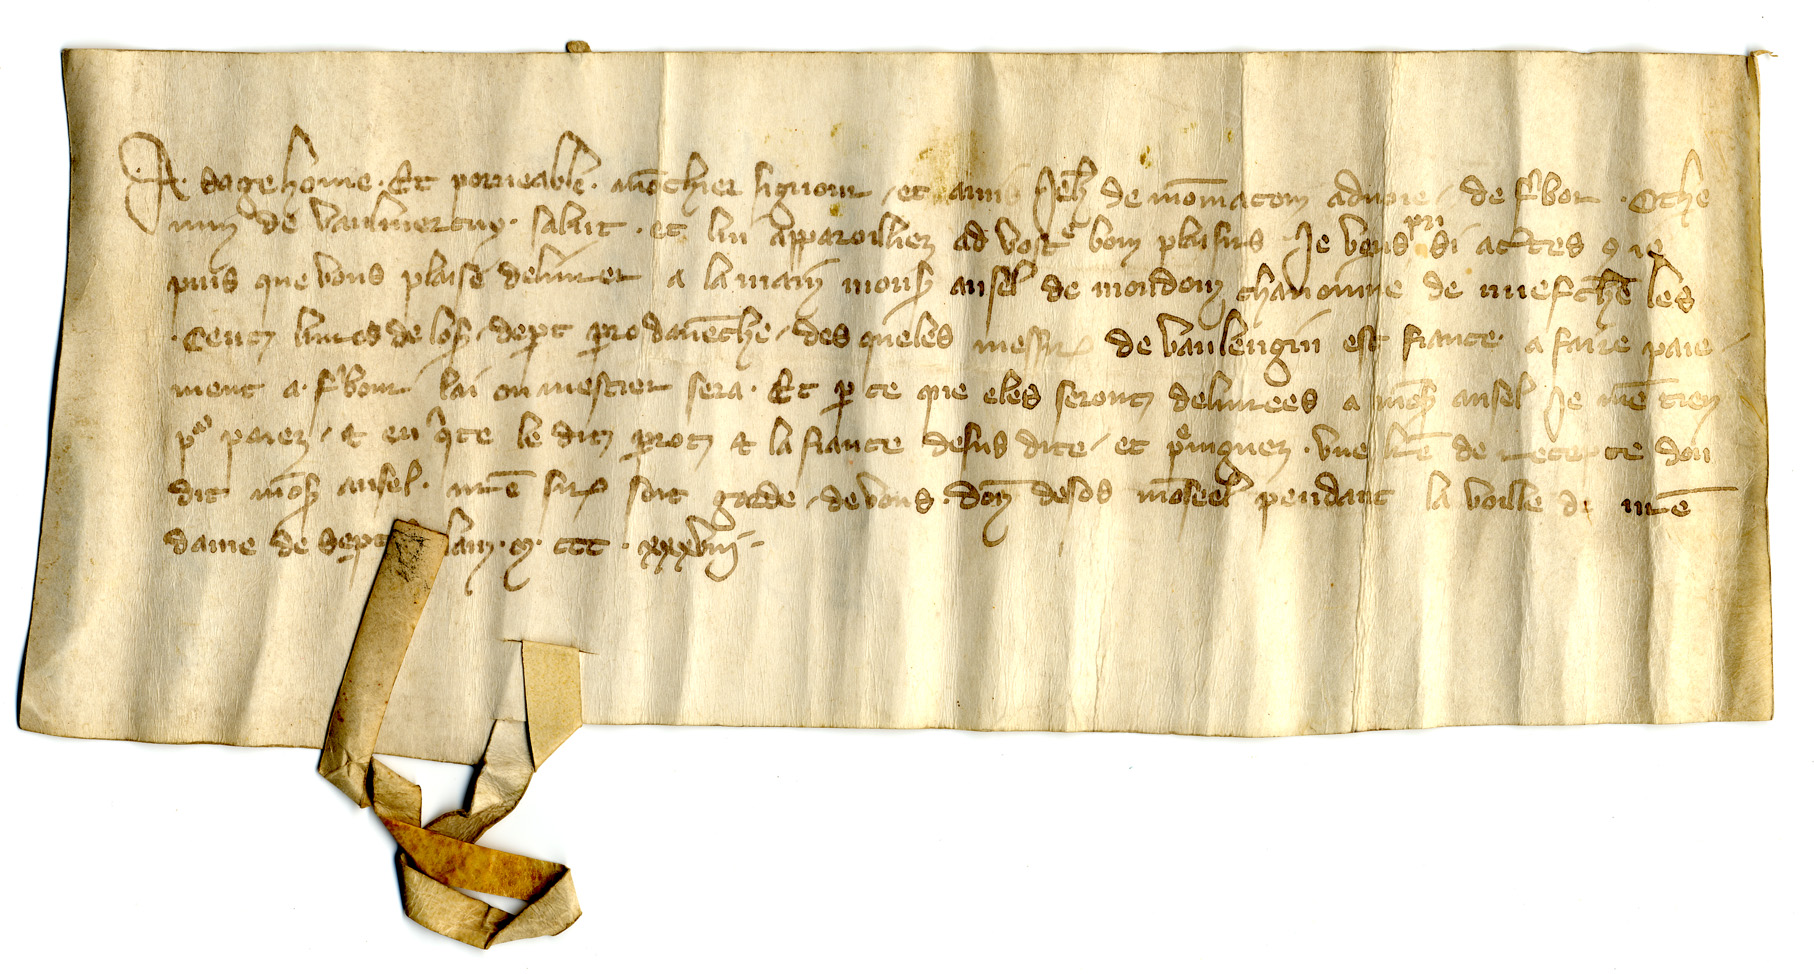 A sage home · Et porueable · mōchier signour / et amis Jeh de mōmacon aduoie / de fbor · Othe
nin de vaulmercuy · salut · et lui apparoillier ad vostre bon plaisirs · Je vous pri si actes que
puis que vous plaise deliurer a la main mons ansel de mondon chanoinne de nuefchē les
· Cent liures de los / dept pro danēche / des queles messire de vaulengin est fiance a faire paie
ment a · fbour lai on mestier sera · Et p ce que eles seront deliurees a mōs ansel Je mē tien
por paiez / et en qte le dit prot et la fiance desus dite / et pringnez · vne lrē de recepte dou
dit mōs ansel · nrē sire soit garde / de vous · don desos mōseel pendant la voille de nrē
dame de sept lan · m · ccc · xxxviij -